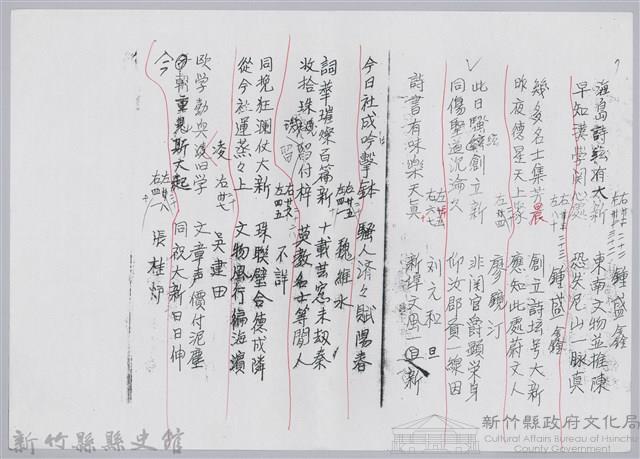 海島詩鉉有大新　東南文物並推陳
早知漢學関心處　恐失尼山一脉真
右廿 左 二十三 鍾盛鑫
幾多名士集芳晨　創立詩壇号大新
昨夜德星天上聚　應知此處蔚文人
廖鏡汀
此日騷壇創立新　非関官爵顕栄身
同傷聖道沉淪久　仰汝郡賁一線因
刘元和
詩書有味樂天真　新埤文風一旦新
今日社成吟擊鉢　騷人済々賦陽春
魏維水
詞華璀燦百篇新　十載芸窓未劫秦
收拾珠璣留付梓　英教名士等閒人
不詳
同挽狂瀾仗大新　珠聯璧合德成隣
從今社運蒸々上　文物風行徧海濱
吳建田
欧学勃與凌旧学　文章声價付泥塵
今朝重見斯文起　同祝大新日日伸
張桂炉
新竹縣縣史館
新竹縣政府文化局
Cultural Affairs Bureau of Hsinchu
County Government